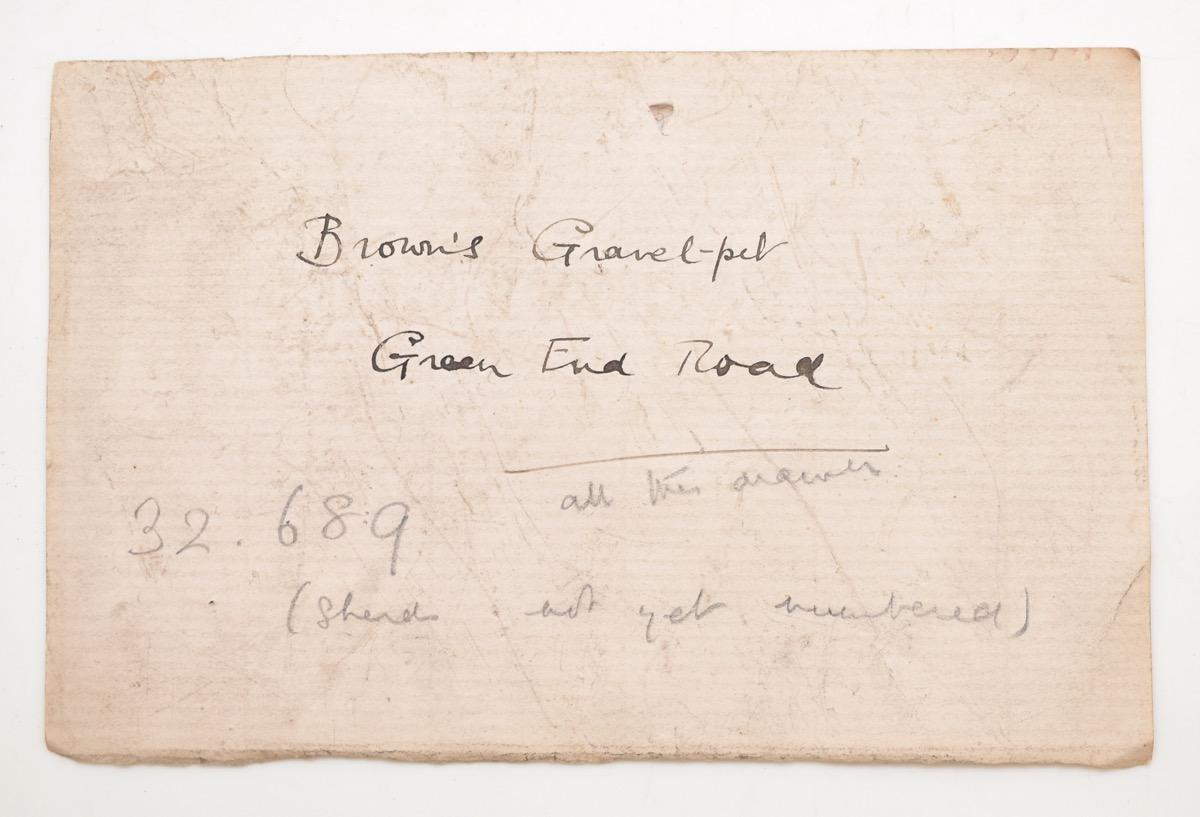 Brown's Gravel-pit
Green End Road
all this drawer
32.689
(Sherds not yet numbered)